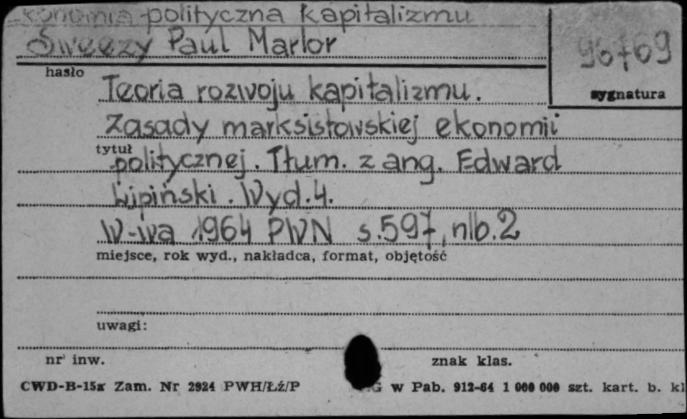 Ekonomia polityczna kapitalizmu
Sweezy Paul Marlor
96769
hasło
sygnatura
Teoria rozwoju kapitalizmu.
Zasady marksistowskiej ekonomii
tytuł
politycznej. Tłum. z ang. Edward
Lipiński. Wyd. 4.
W-wa 1964 PWN s.597, nlb.2
miejsce, rok wyd., nakładca, format, objętość
uwagi:
nr inw.
znak klas.
CWD-B-15x Zam. Nr 2924 PWH/Łź/P
G w Pab. 912-64 1 000 000 szt. kart. b. kl